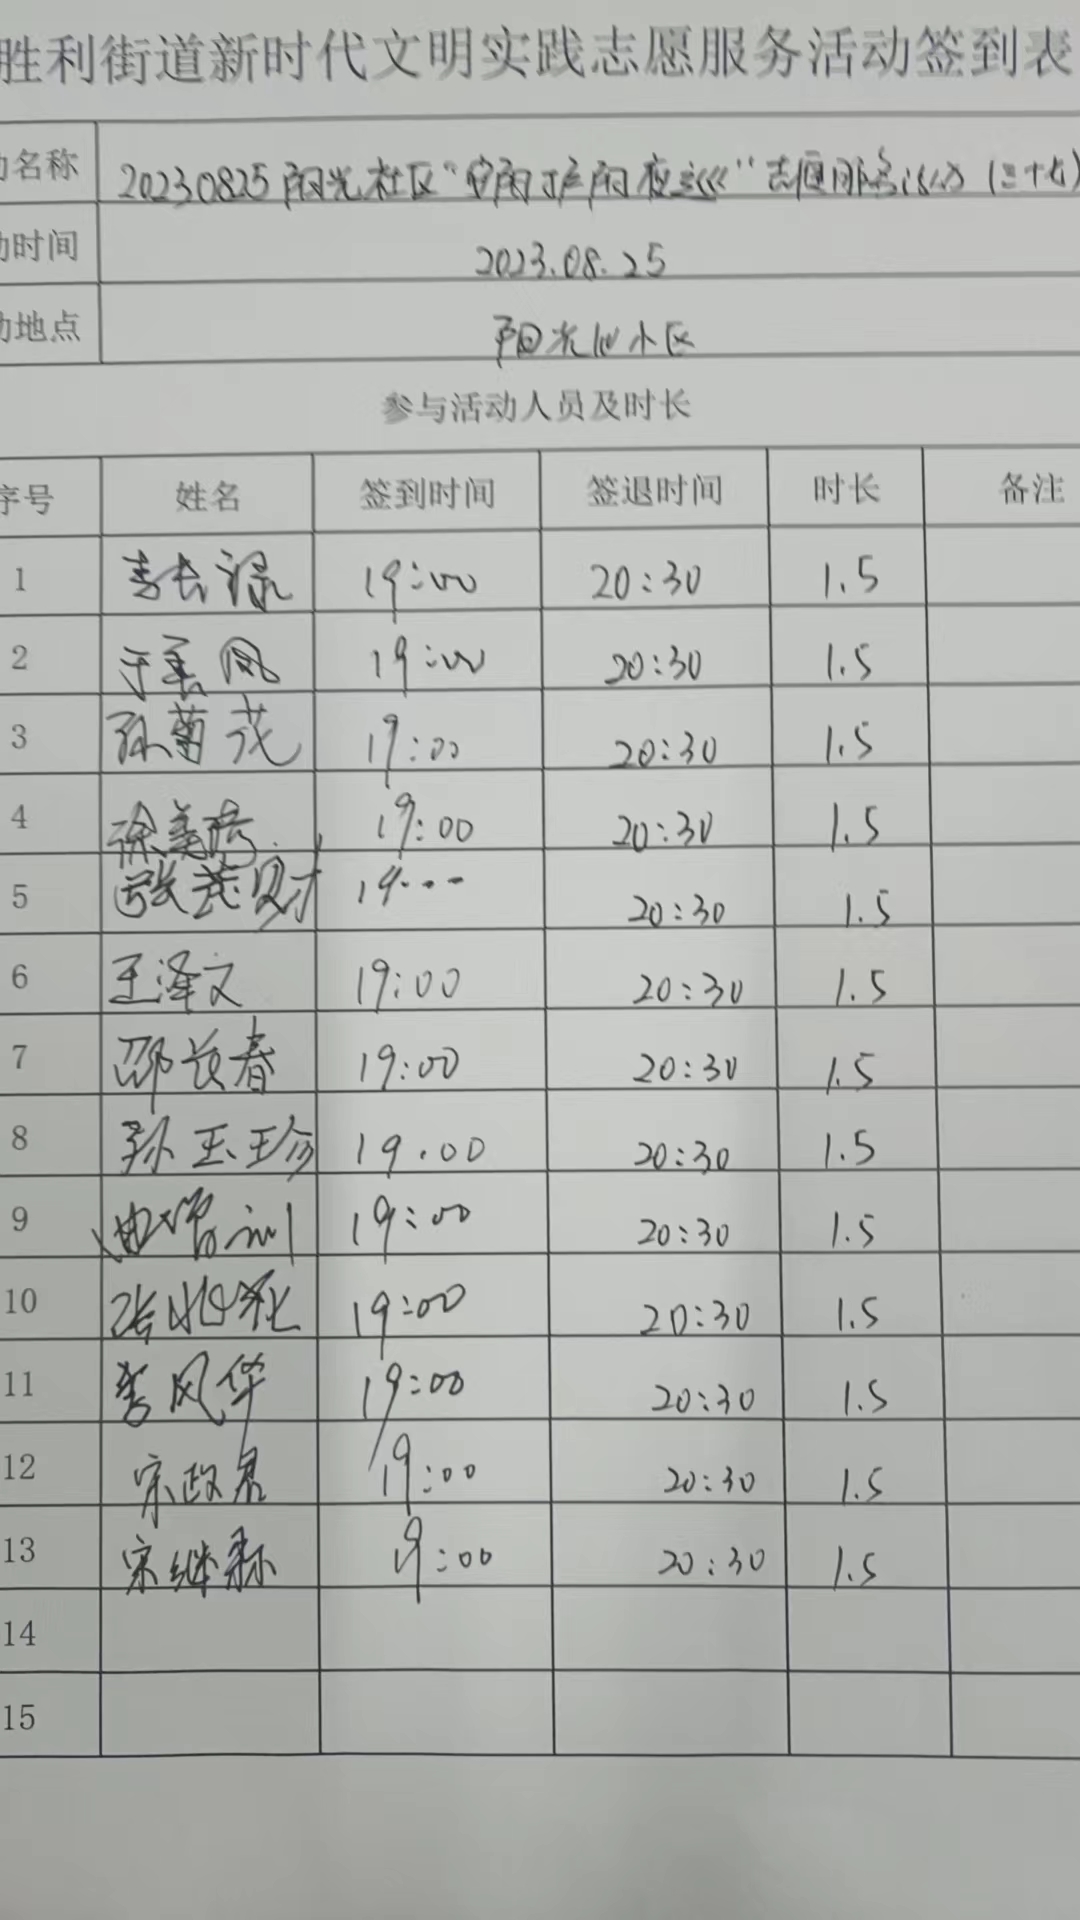 胜利街道新时代文明实践志愿服务活动签到表
动名称 20230825阳光社区“ 夜巡”志愿服务活动(三十七)
动时间 2023.08.25
动地点 阳光 小区
参与活动人员及时长
序号 姓名 签到时间 签退时间 时长 备注
1 李长禄 19:00 20:30 1.5
2 于 凤 19:00 20:30 1.5
3 孙菊茂 19:00 20:30 1.5
4 徐美 19:00 20:30 1.5
5 张 财 19 20:30 1.5
6 王泽文 19:00 20:30 1.5
7 邵长春 19:00 20:30 1.5
8 孙玉珍 19.00 20:30 1.5
9 曲 训 19:00 20:30 1.5
10 张 19:00 20:30 1.5
11 李风华 19:00 20:30 1.5
12 宋政君 19:00 20:30 1.5
13 宋继 19:00 20:30 1.5
14
15